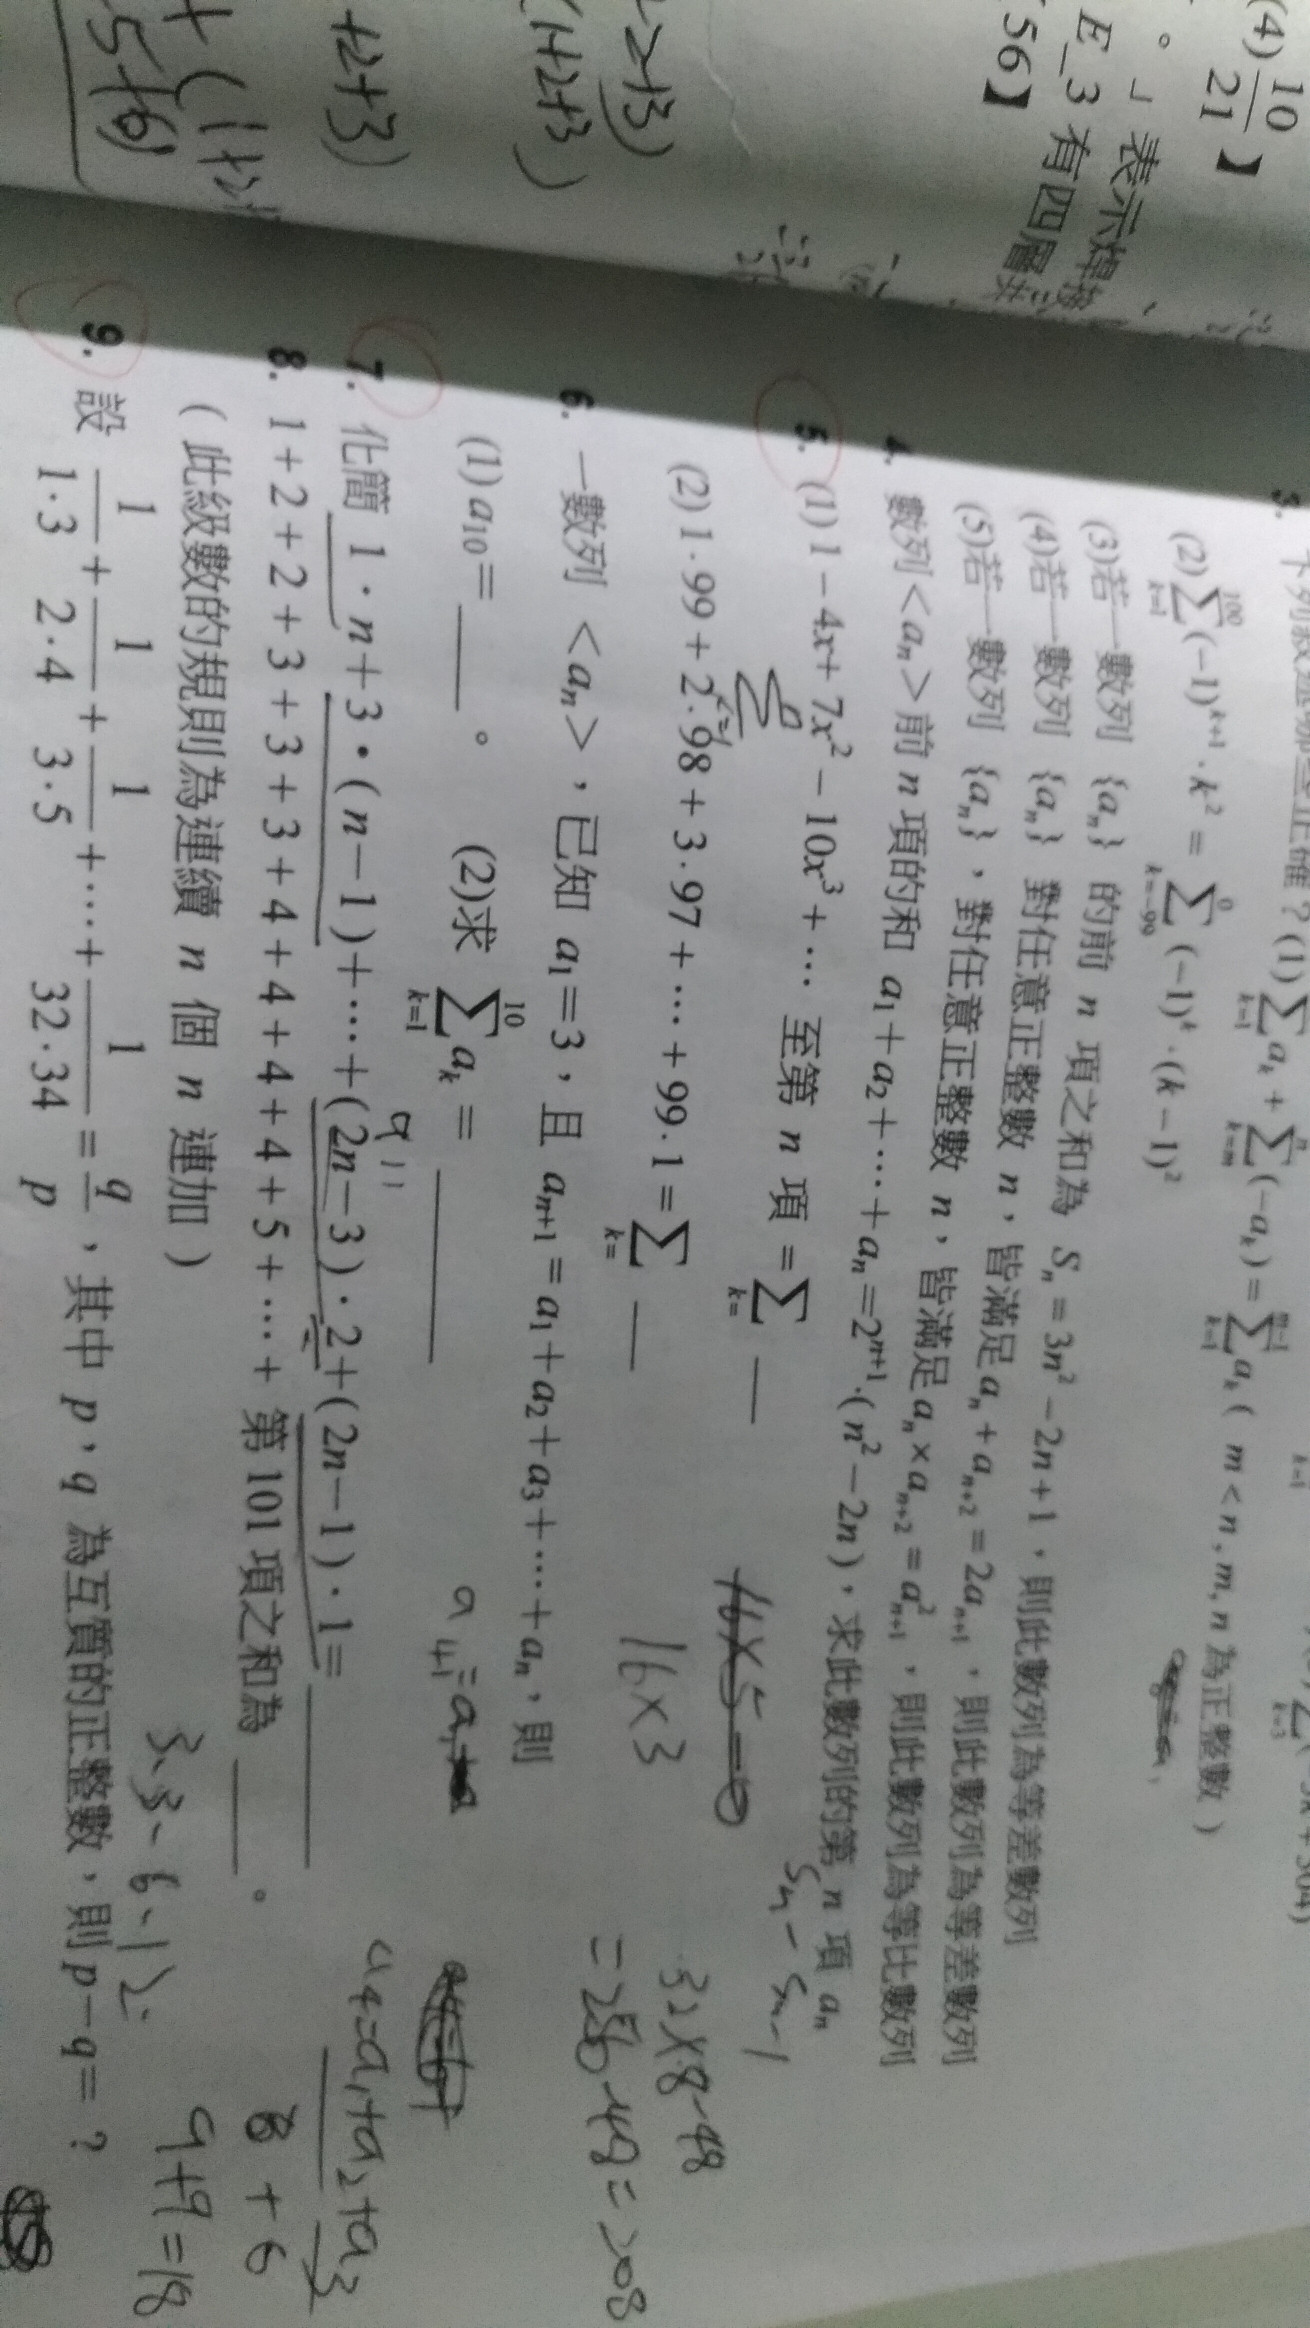 (4) 10/21 】
。」表示焊接
E_3 有四層
56】
(1+2+3)
+2+3)
3. 下列敘述哪些正確？(1) \sum_{k=1} a_k + \sum_{k=m}^{n} (-a_k) = \sum_{k=1}^{m-1} a_k ( m < n , m, n 為正整數 )
(2) \sum_{k=1}^{100} (-1)^{k+1} · k^2 = \sum_{k=-99}^{0} (-1)^k · (k-1)^2
(3)若一數列 {a_n} 的前 n 項之和為 S_n = 3n^2 - 2n + 1，則此數列為等差數列
(4)若一數列 {a_n} 對任意正整數 n，皆滿足 a_n + a_{n+2} = 2a_{n+1}，則此數列為等差數列
(5)若一數列 {a_n}，對任意正整數 n，皆滿足 a_n × a_{n+2} = a_{n+1}^2，則此數列為等比數列
4. 數列 <a_n> 前 n 項的和 a_1 + a_2 + ⋯ + a_n = 2^{n+1} · ( n^2 - 2n )，求此數列的第 n 項 a_n
S_n - S_{n-1}
5. (1) 1 - 4x + 7x^2 - 10x^3 + ⋯ 至第 n 項 = \sum_{k=} __
(2) 1 · 99 + 2 · 98 + 3 · 97 + ⋯ + 99 · 1 = \sum_{k=} __
16×3
32×8-48
=256-48=208
6. 一數列 <a_n>，已知 a_1 = 3，且 a_{n+1} = a_1 + a_2 + a_3 + ⋯ + a_n，則
(1) a_{10} = ____。 (2)求 \sum_{k=1}^{10} a_k = ____
a_4=a_1+a_2+a_3
7. 化簡 1 · n + 3 · ( n - 1 ) + ⋯ + ( 2n - 3 ) · 2 + ( 2n - 1 ) · 1 = ____
8. 1 + 2 + 2 + 3 + 3 + 3 + 4 + 4 + 4 + 4 + 5 + ⋯ + 第 101 項之和為 ____。
( 此級數的規則為連續 n 個 n 連加 )
6 + 6
3、3、6、12
9+9=18
9. 設 1/(1·3) + 1/(2·4) + 1/(3·5) + ⋯ + 1/(32·34) = q/p，其中 p，q 為互質的正整數，則 p - q = ？